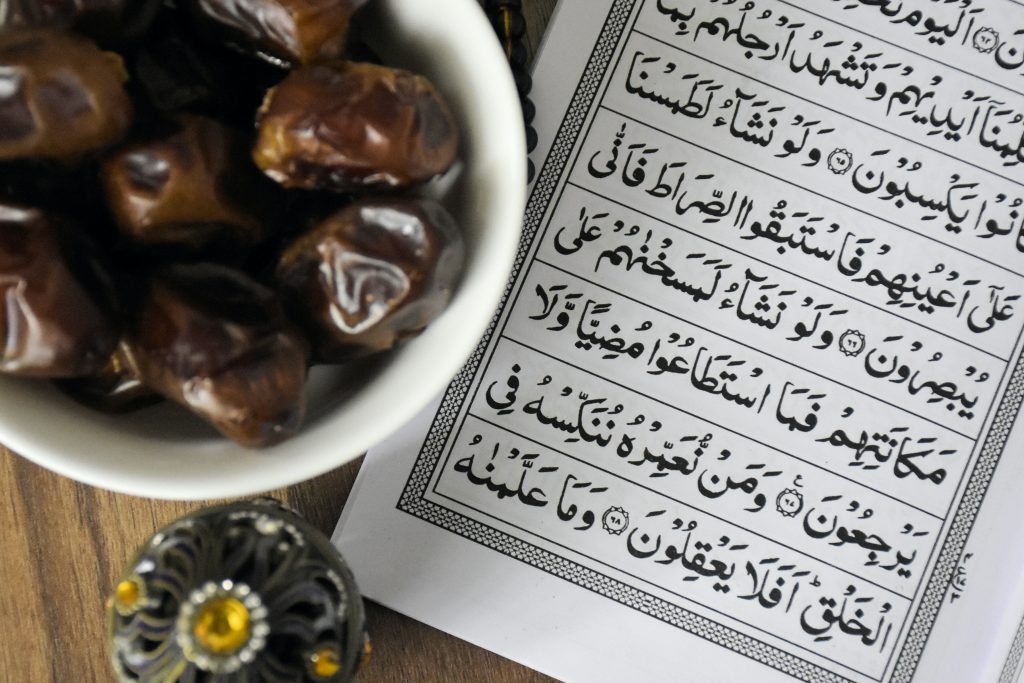 اَلْيَوْمَ
لِّمُنَاۤ اَيْدِيْهِمْ وَتَشْهَدُ اَرْجُلُهُمْ بِمَا
انُوْا يَكْسِبُوْنَ ۝٦٥ وَلَوْ نَشَآءُ لَطَمَسْنَا
عَلٰۤى اَعْيُنِهِمْ فَاسْتَبَقُوا الصِّرَاطَ فَاَنّٰى
يُبْصِرُوْنَ ۝٦٦ وَلَوْ نَشَآءُ لَمَسَخْنٰهُمْ عَلٰى
مَكَانَتِهِمْ فَمَا اسْتَطَاعُوْا مُضِيًّا وَّلَا
يَرْجِعُوْنَ ۝٦٧ وَمَنْ نُّعَمِّرْهُ نُنَكِّسْهُ فِى
الْخَلْقِ ؕ اَفَلَا يَعْقِلُوْنَ ۝٦٨ وَمَا عَلَّمْنٰهُ